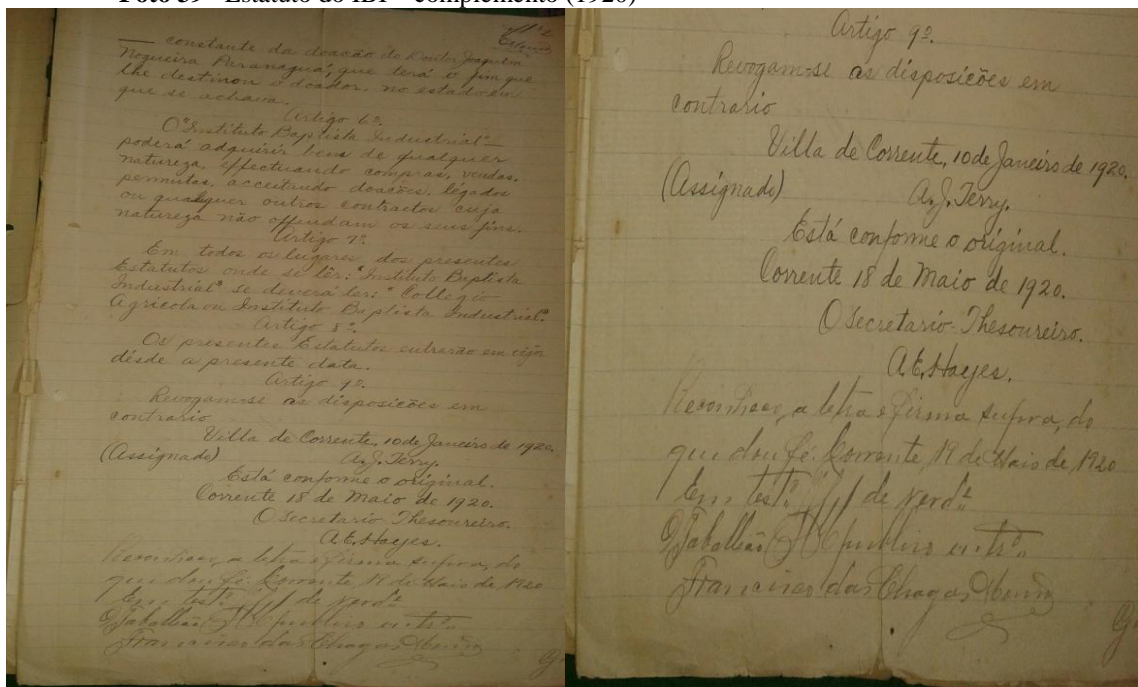 Foto 39 - Estatuto do IBI – complemento (1920)
constante da doacão do Doutor Joaquim
Nogueira Paranaguá, que terá o fim que
lhe destinou o doador, no estado em
que se achava.
Artigo 6º.
O "Instituto Baptista Industrial"
poderá adquirir bens de qualquer
natureza, effectuando compras, vendas,
permutas, acceitando doacões, légados
ou qualquer outros contractos cuja
natureza não offendam os seus fins.
Artigo 7º.
Em todos os lugares dos presentes
Estatutos onde se lêr: "Instituto Baptista
Industrial" se deverá ler: "Collegio
Agricola ou Instituto Baptista Industrial."
Artigo 8º.
Os presentes Estatutos entrarão em vigôr
désde a presente data.
Artigo 9º.
Revogam-se as disposicões em
contrario
Villa de Corrente, 10 de Janeiro de 1920.
(Assignado) A. J. Terry.
Está conforme o original.
Corrente 18 de Maio de 1920.
O Secretario Thesoureiro.
A. E. Hayes.
Reconheco a letra e firma supra, do
que dou fé. Corrente, 19 de Maio de 1920
Em testº de verdº
O Tabellião
Francisco das Chagas
Artigo 9º.
Revogam-se as disposicões em
contrario
Villa de Corrente, 10 de Janeiro de 1920.
(Assignado) A. J. Terry.
Está conforme o original.
Corrente 18 de Maio de 1920.
O Secretario Thesoureiro.
A. E. Hayes.
Reconheco a letra e firma supra, do
que dou fé. Corrente, 19 de Maio de 1920
Em testº de verdº
O Tabellião
Francisco das Chagas